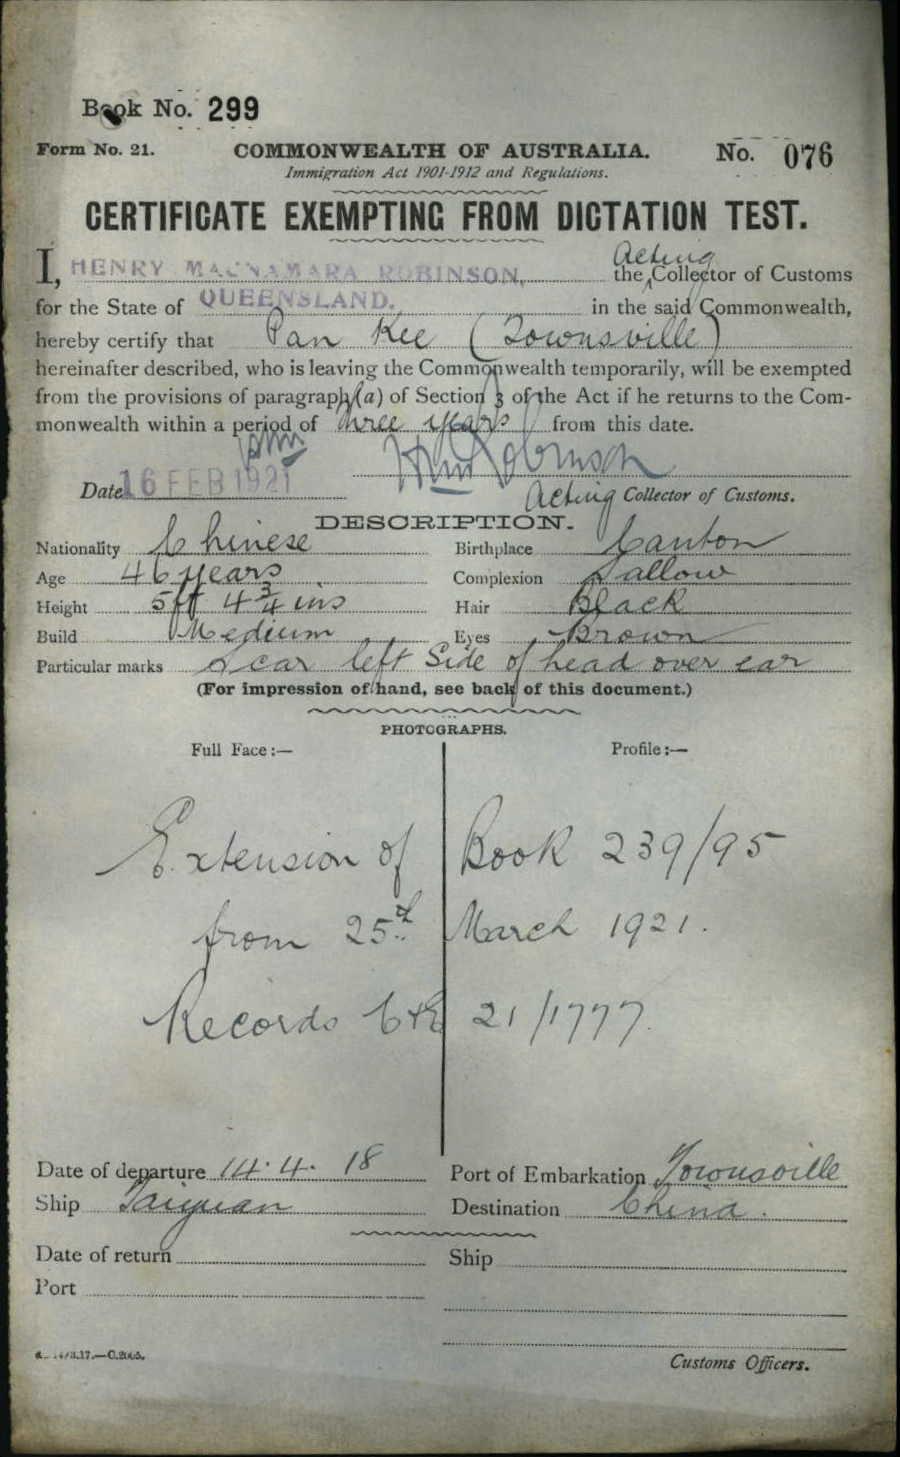 Book No. 299
Form No. 21. COMMONWEALTH OF AUSTRALIA. No. 076
Immigration Act 1901-1912 and Regulations.
CERTIFICATE EXEMPTING FROM DICTATION TEST.
Acting
I, HENRY MACNAMARA ROBINSON, the Collector of Customs
for the State of QUEENSLAND. in the said Commonwealth,
hereby certify that Pan Kee (Townsville)
hereinafter described, who is leaving the Commonwealth temporarily, will be exempted
from the provisions of paragraph (a) of Section 3 of the Act if he returns to the Com-
monwealth within a period of three years from this date.
HM Robinson
Date 16 FEB 1921 Acting Collector of Customs.
DESCRIPTION.
Nationality Chinese Birthplace Canton
Age 46 years Complexion Sallow
Height 5ft 4 3/4 ins Hair Black
Build Medium Eyes Brown
Particular marks Scar left Side of head over ear
(For impression of hand, see back of this document.)
PHOTOGRAPHS.
Full Face:— Profile:—
Extension of Book 239/95
from 25th March 1921.
Records C&E 21/1777.
Date of departure 14.4.18 Port of Embarkation Townsville
Ship Taiyuan Destination China.
Date of return Ship
Port
Customs Officers.